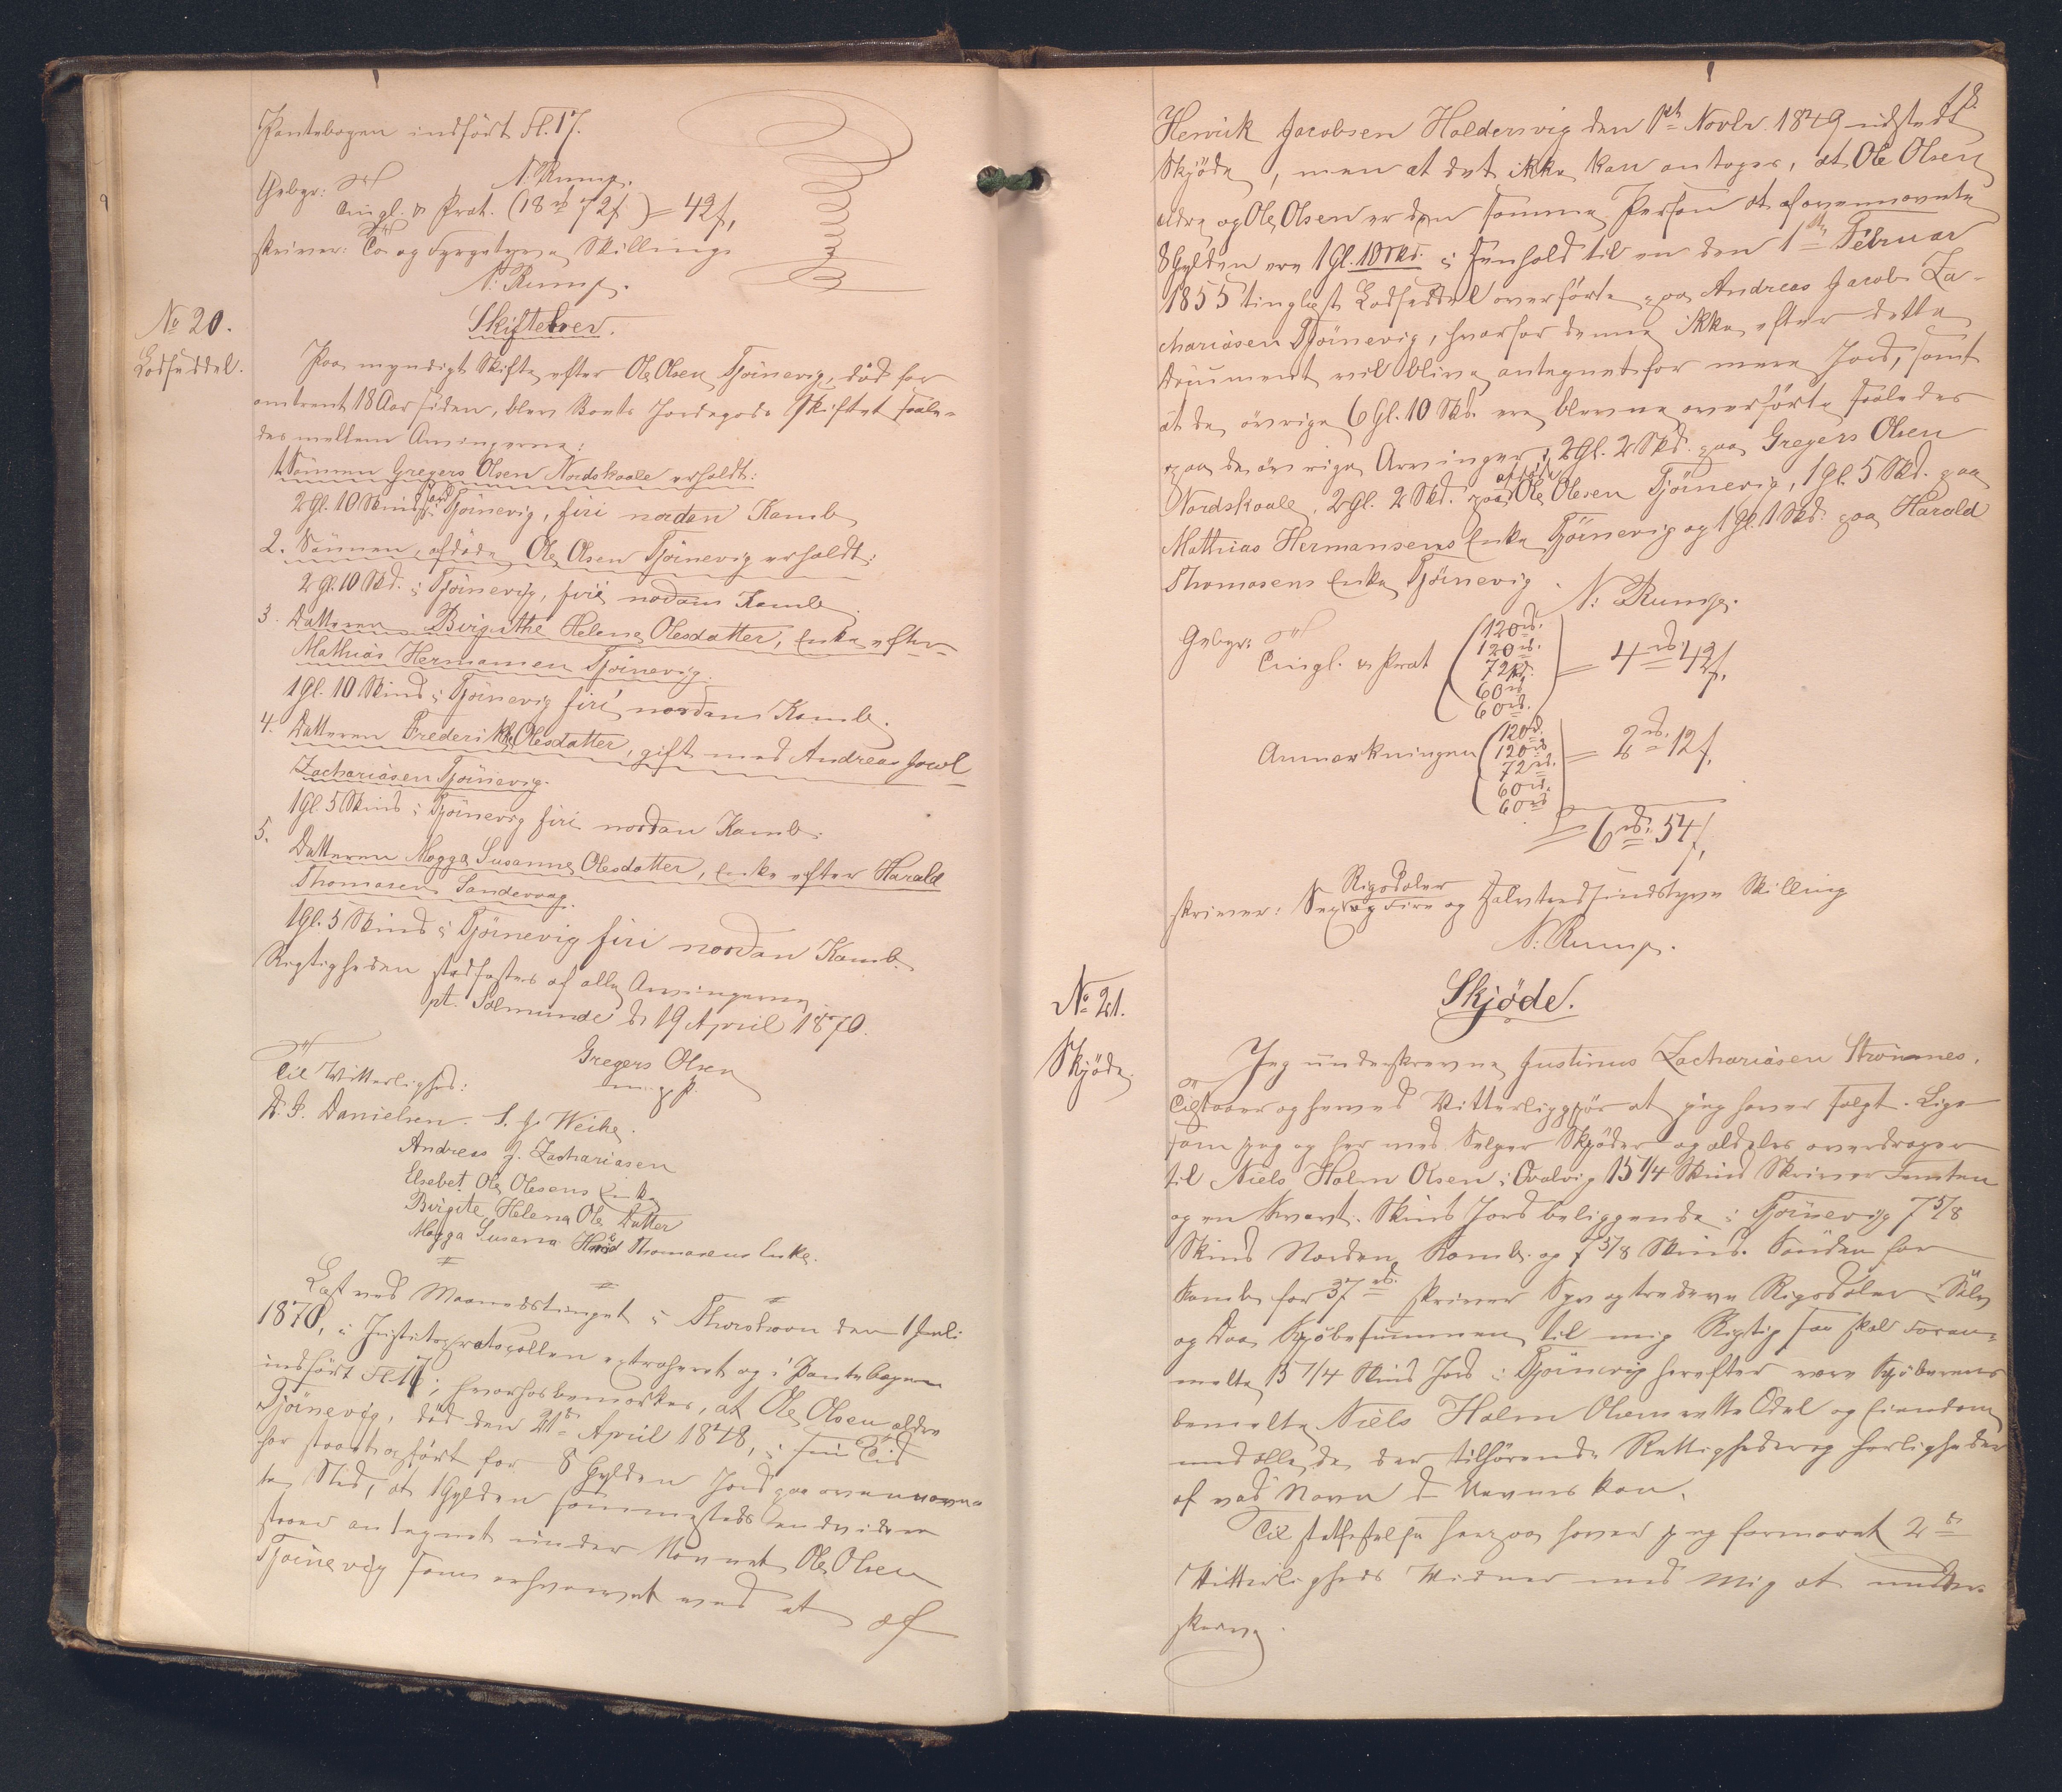 Pantebogen indfört Fl. 17.
N: Rump.
Gebyr: Tingl. & Prot. (18 rd 72 ß) = 42 ß,
skriver: To og Fyrgetyve Skilling.
N: Rump.
No 20.
Lodseddel.
Skiftebrev.
Paa myndigt Skifte efter Ole Olsen Tjörnevig, död for
omtrent 18 Aar siden, blev Boets Jordegods skiftet saale-
des mellem Arvingerne:
1. Sönnen Gregers Olsen Nordskaale erholdt:
2 Gl. 10 Skind Jord i Tjörnevig, firi nordan Kamb
2. Sönnen, afdöde Ole Olsen Tjörnevig erholdt:
2 Gl. 10 Skd. i Tjörnevig, firi nordan Kamb
3. Datteren Birgithe Helene Olesdatter, Enke efter
Mathias Hermansen Tjörnevig.
1 Gl. 10 Skind i Tjörnevig firi nordan Kamb.
4. Datteren Frederikke Olesdatter, gift med Andreas Jacob
Zachariasen Tjörnevig.
1 Gl 5 Skind i Tjörnevig firi nordan Kamb.
5. Datteren Magga Susanne Olesdatter, Enke efter Harald
Thomasen Sandevaag.
1 Gl. 5 Skind i Tjörnevig firi nordan Kamb.
Rigtigheden stadfæstes af alle Arvingerne
pt. Salmunde d. 19 April 1870.
Gregers Olsen
m. g. p.
Til Vitterlighed:
D. P. Danielsen. S. J. Weihe.
Andreas J. Zachariasen
Elsebet Ole Olesens Enke
Birgite Helena Ole Datter
Magga Susana Harald Thomasens Enke.
Læst ved Maanedstinget i Thorshavn den 1 Juli
1870, i Justitsprotocollen extraheret og i Pantebogen
indfört Fl 17; hvorhos bemærkes, at Ole Olsen ældre
Tjörnevig, död den 21de April 1848, i sin Tid
har staaet opfört for 8 Gylden Jord paa ovennævn-
te Sted, at 1 Gylden sammesteds endvidere
staaer antegnet under Navnet Ole Olsen
Tjörnevig som erhvervet ved et af
18.
Henrik Jacobsen Haldersvig den 1st Novbr. 1849 udstedt
Skjöde, men at det ikke kan antages, at Ole Olsen
ældre og Ole Olsen er den samme Person at af ovennævnte
8 Gylden ere 1 Gl. 10 Skd. i Henhold til en den 1ste Februar
1855 tinglæst Lodseddel overförte paa Andreas Jacob Za-
chariasen Tjörnevig, hvorfor denne ikke efter dette
Document vil blive antegnet for mere Jord, samt
at de övrige 6 Gl. 10 Skd. ere blevne overförte saaledes
paa de övrige Arvinger: 2 Gl. 2 Skd. paa Gregers Olsen
Nordskaale, 2 Gl. 2 Skd. paa afdöde Ole Olesen Tjörnevig, 1 Gl. 5 Skd. paa
Mathias Hermansens Enke Tjörnevig og 1 Gl. 1 Skd. paa Harald
Thomasens Enke Tjörnevig.
N: Rump.
Gebyr: Tingl. & Prot (120 rd. 120 rd. 72 rd. 60 rd. 60 rd.) = 4 rd 42 ß,
Anmærkningen (120 rd. 120 rd. 72 rd. 60 rd. 60 rd.) = 2 rd. 12 ß,
= 6 rd: 54 ß,
skriver: Sex Rigsdaler og Fire og Halvtredsindstyve Skilling
N: Rump.
No 21.
Skjöde.
Skjöde.
Jeg underskrevne Justinus Zachariasen Strömnes,
Tilstaaer og herved Vitterliggjör at jeg haver solgt. Lige
som jeg og her med Selger Skjöder og aldeles overdrager
til Niels Holm Olsen i Qvalvig 15 1/4 Skind Skriver Femten
og en Kvart. Skind Jord beliggende i Tjörnevig 7 5/8
Skind Norden Kamb. og 7 5/8 Skind. Sönden for
Kamb for 37 rd. skriver Syv og tredeve Rigsdaler Sölv
og Da Kjöbesummen til mig Rigtig saa skal Foran-
melte 15 1/4 Skind Jord i Tjörnevig herefter være Kjöberens
bemelte Niels Holm Olsens rette Odel og Eiendom
med alle de der tilhörende Rettigheder og herligheder
af vad Navn d Nævnes kan.
Til statfestelse herpaa haver jeg formaaet 2de
Vitterligheds Vidner med mig at under-
skrive.